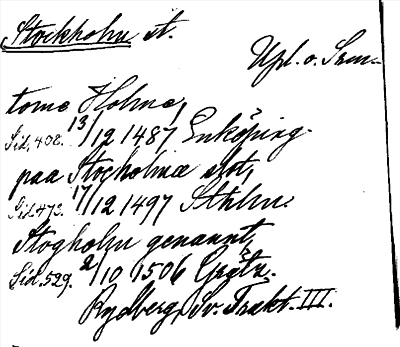 Stockholm st.
Upl. o. Söm.
tome Holme,
Sid. 408. 13/12 1487 Enköping.
paa Stocholmæ slot,
Sid. 473. 17/12 1497 Sthlm.
Stogholm genannt,
Sid. 529. 2/10 1506
Rydberg, Sv. Trakt. III.